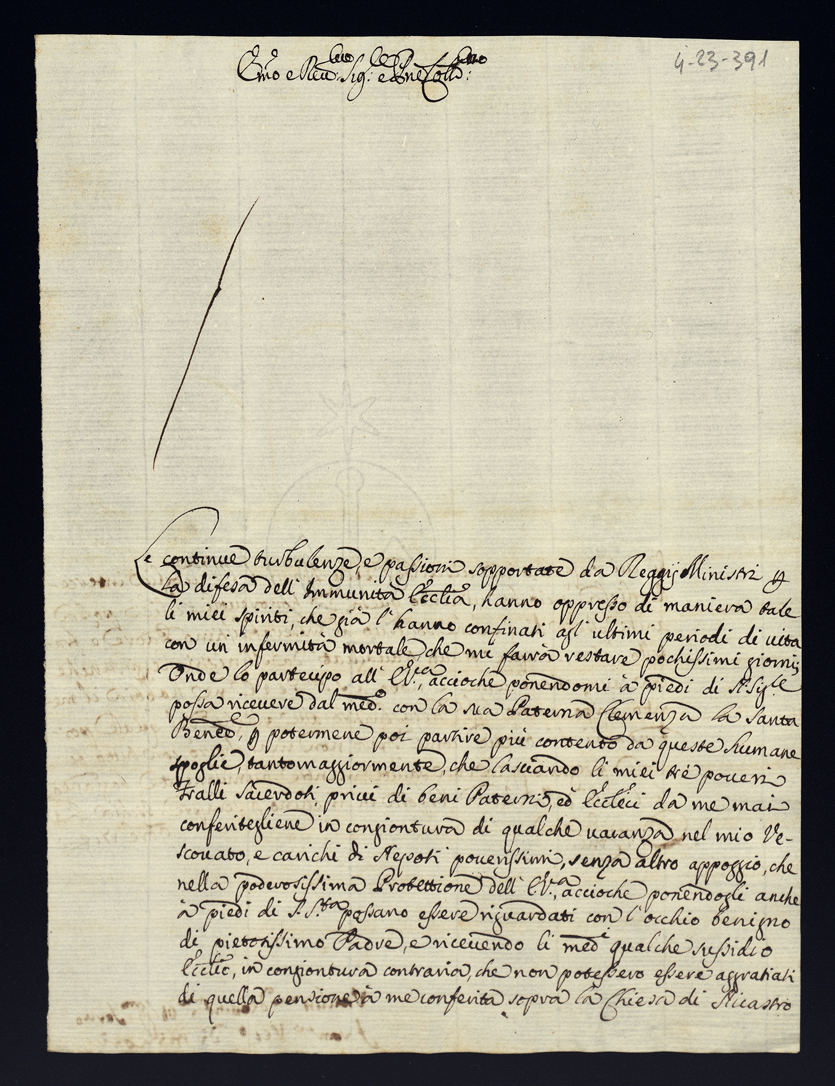 Em̃o e Rev:mo Sig:re e Prñe Coll:mo
4-23-391
Le continue turbulenze, e passioni sopportate da Reggij Ministri p
la difesa dell' Immunità Ec̃clia, hanno oppresso di maniera tale
li miei spiriti, che già l' hanno confinati agl' ultimi periodi di vita
con un infermità mortale, che mi farrà restare pochissimi giorni;
Onde lo partecipo all' E.V.ra, accioche ponendomi à piedi di
possa ricevere dal med.o con la sua Paterna Clemenza la Santa
Bened.e, p potermene poi partire più contento da queste humane
spoglie, tantomaggiormente, che lasciando li miei trè poveri
Fralli Sacerdoti, privi di beni Paterni, ed Ec̃cleci da me mai
conferitegliene in congiontura di qualche vacanza nel mio Ve-
scouato, e carichi di Nepoti poverissimi, senza altro appoggio, che
nella poderosissima Protettione dell' E.V.ra, accioche ponendogli anche
à piedi di S. S.tà possano essere riguardati con l' occhio benigno
di pietosissimo Padre, e ricevendo li med.i qualche sussidio
Ec̃clio, in congiontura contraria, che non potessero essere aggratiati
di quella pensione à me conferita sopra la Chiesa di Nicastro